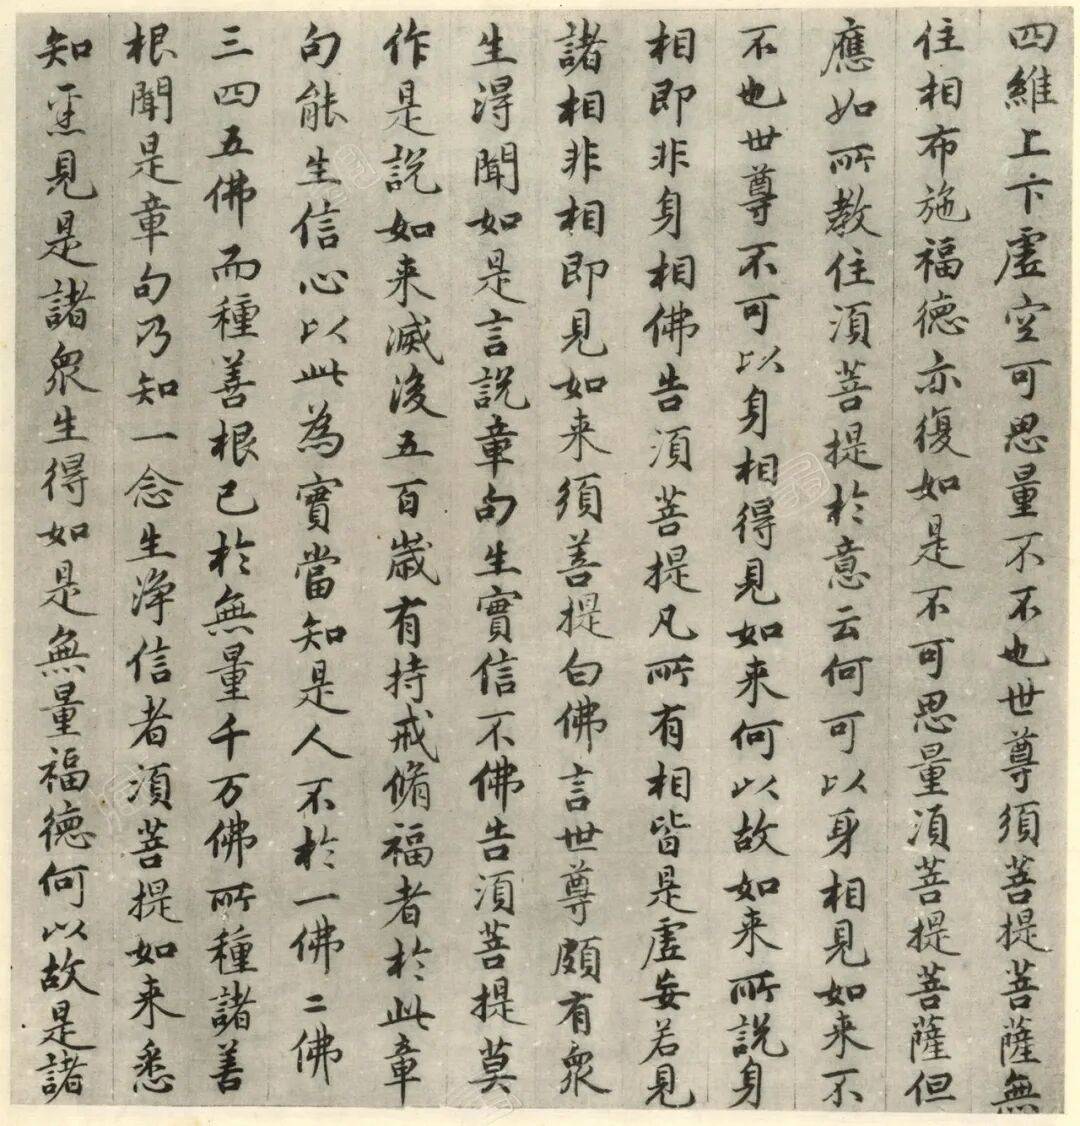 四維上下虛空可思量不不也世尊須菩提菩薩無
住相布施福德亦復如是不可思量須菩提菩薩但
應如所教住須菩提於意云何可以身相見如来不
不也世尊不可以身相得見如来何以故如来所說身
相即非身相佛告須菩提凡所有相皆是虛妄若見
諸相非相即見如来須菩提白佛言世尊頗有眾
生得聞如是言說章句生實信不佛告須菩提莫
作是說如来滅後五百歲有持戒脩福者於此章
句能生信心以此為實當知是人不於一佛二佛
三四五佛而種善根已於無量千万佛所種諸善
根聞是章句乃知一念生淨信者須菩提如来悉
知悉見是諸眾生得如是無量福德何以故是諸